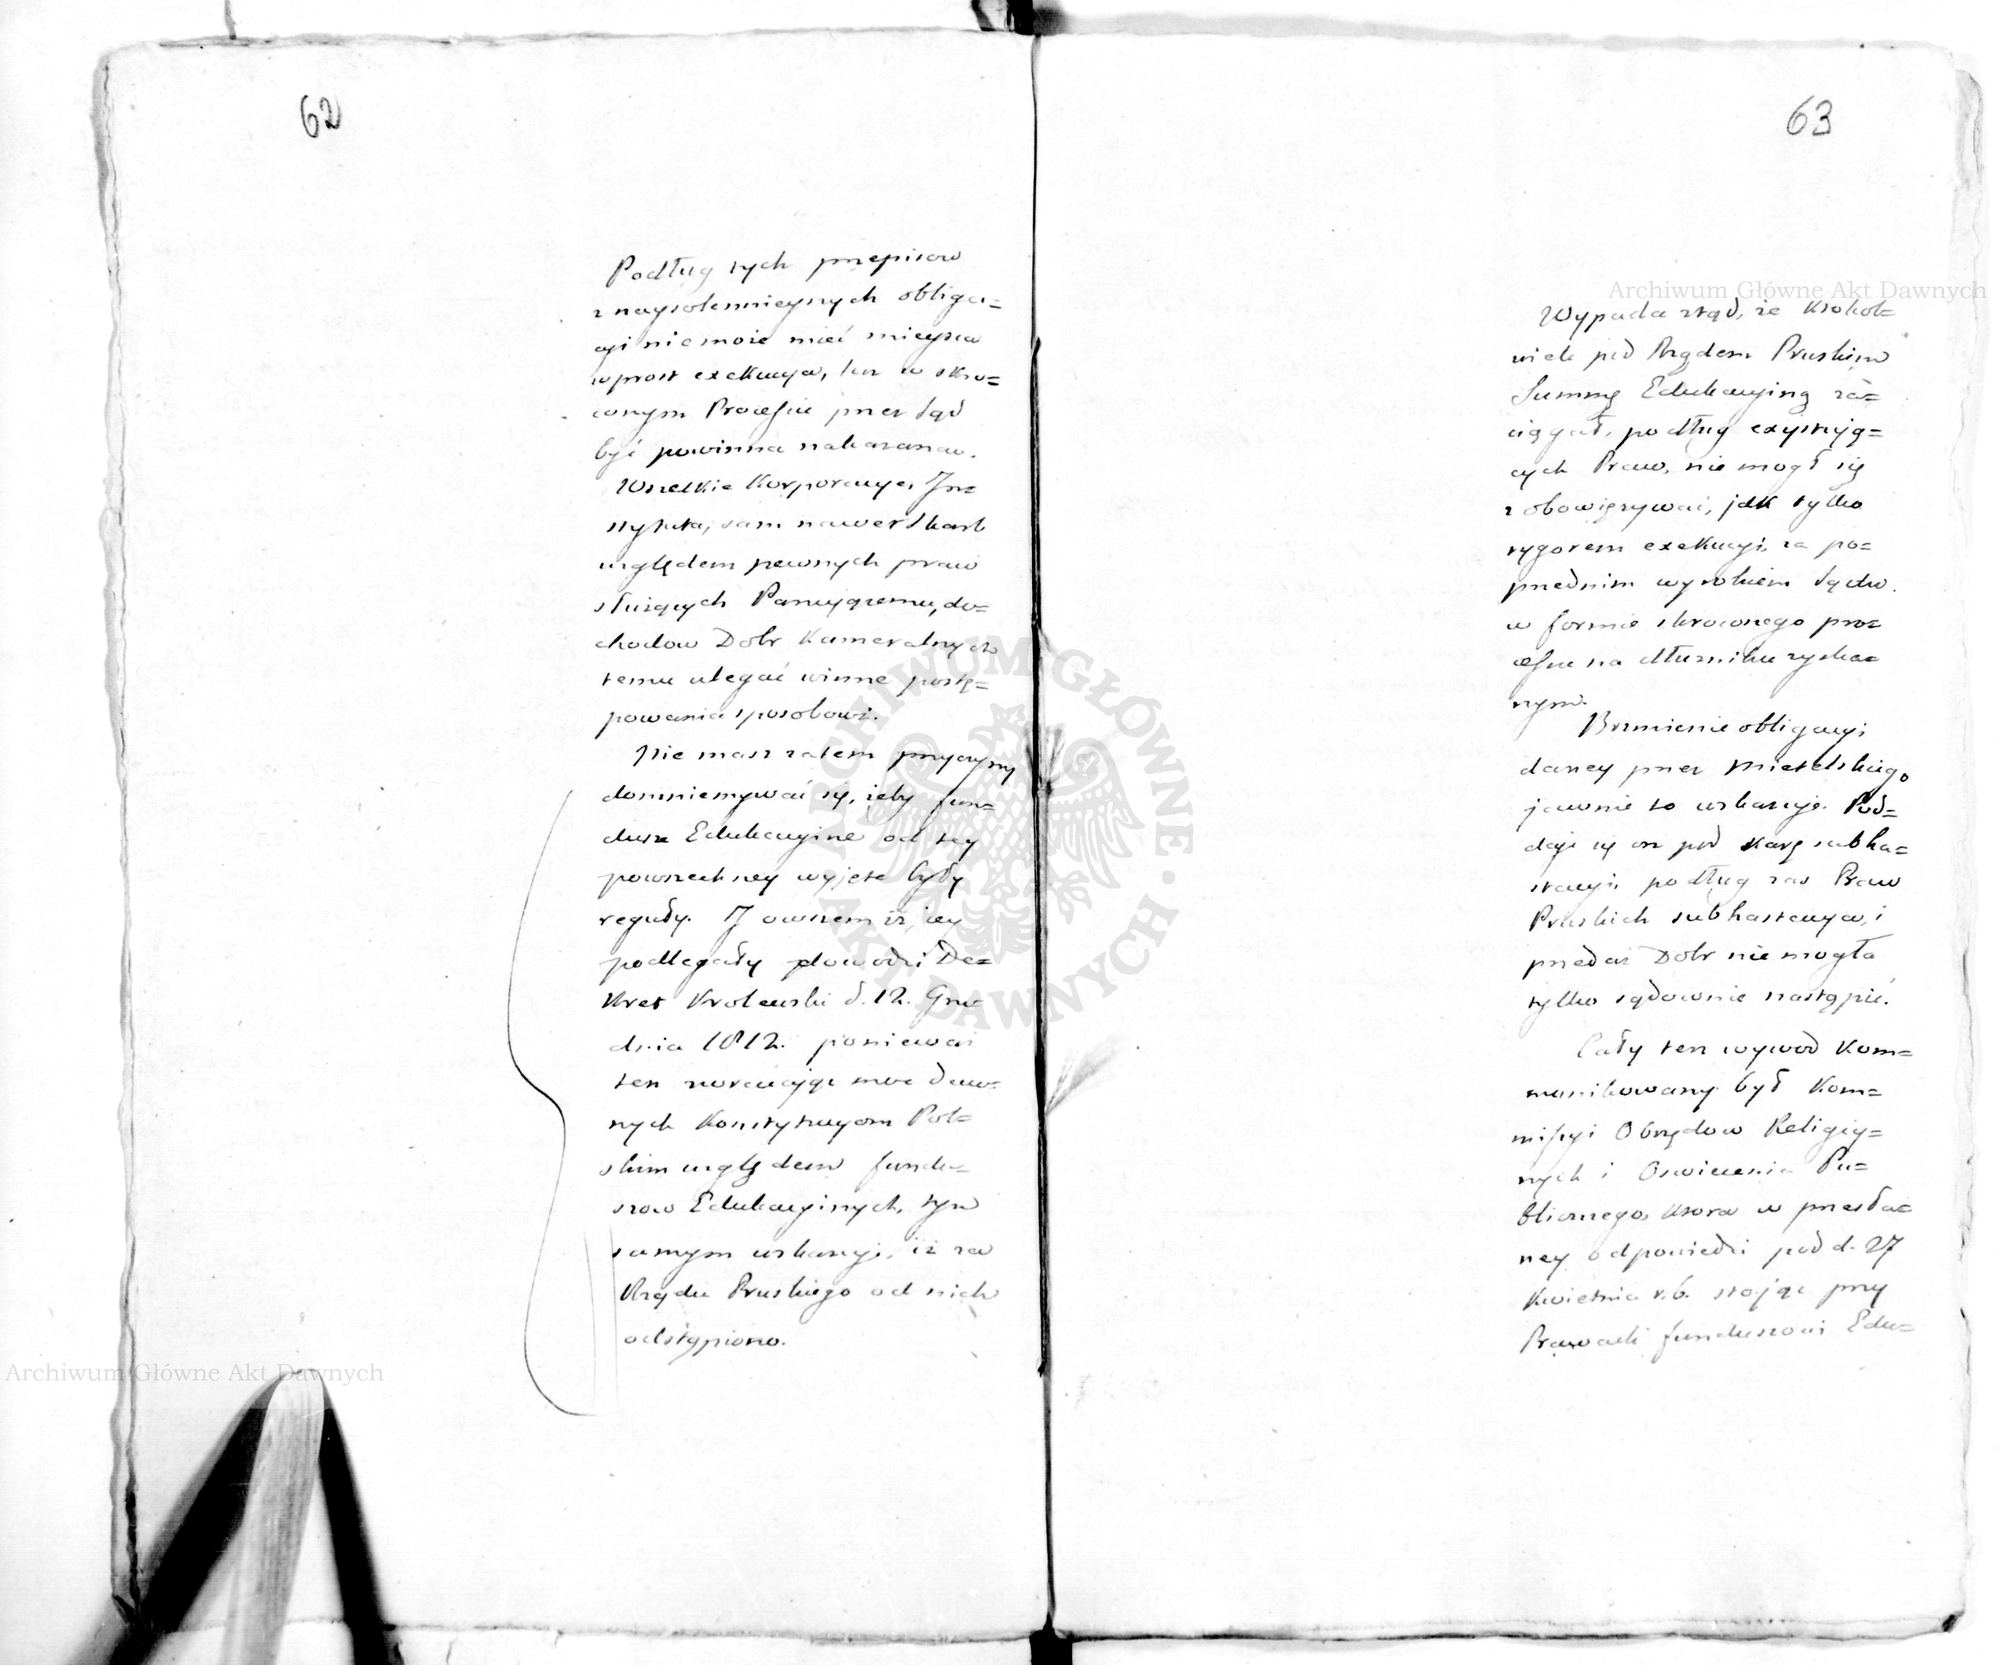 62
Podług tych przepisow
z naysolennieyszych obliga=
cyi niemoże mieć mieysca
wprost exekucya, lecz w skro=
conym Processie przez Sąd
być powinna nakazana.
Wszelkie Korporacye, In=
stytuta, sam nawet Skarb
względem pewnych praw
służących Panuiącemu, do=
chodow Dobr Kameralnych
temu ulegać winne postę=
powania sposobowi.
Nie masz zatem przyczyny
domniemywać się, żeby fun=
dusze Edukacyine od tey
powszechney wyięte były
reguły. I owszem iż iey
podlegały dowodzi De=
kret Krolewski d. 12. Gru=
dnia 1812. ponieważ
ten zwracaiąc moc daw=
nych Konstytucyom Pol=
skim względem fundu=
szow Edukacyinych, tym
samym wskazuje, iż za
Rządu Pruskiego od nich
odstąpiono.
63
Wypada ztąd, że Ktokol=
wiek pod Rządem Pruskim
Summę Edukacyiną za=
ciągał, podług exystuią=
cych Praw, nie mogł się
zobowięzywać, jak tylko
rygorem exekucyi, za po=
przednim wyrokiem Sądu
w formie skroconego pro=
cessu na dłużniku zyska=
nym.
Brzmienie obligacyi
daney przez Mielżskiego
jawnie to wskazuje. Pod=
daje się on pod karę subha=
stacyi, podług zas Praw
Pruskich subhastacya, i
przedaż Dobr nie mogła
tylko sądownie nastąpić.
Cały ten wywod Kom=
munikowany był Kom=
missyi Obrzędow Religiy=
nych i Oswiecenia Pu=
blicznego, Ktora w przesła=
ney odpowiedzi pod d. 27
Kwietnia r.b. stojąc przy
Prawach funduszowi Edu=
Archiwum Główne Akt Dawnych
Archiwum Główne Akt Dawnych
ARCHIWUM GŁÓWNE AKT DAWNYCH